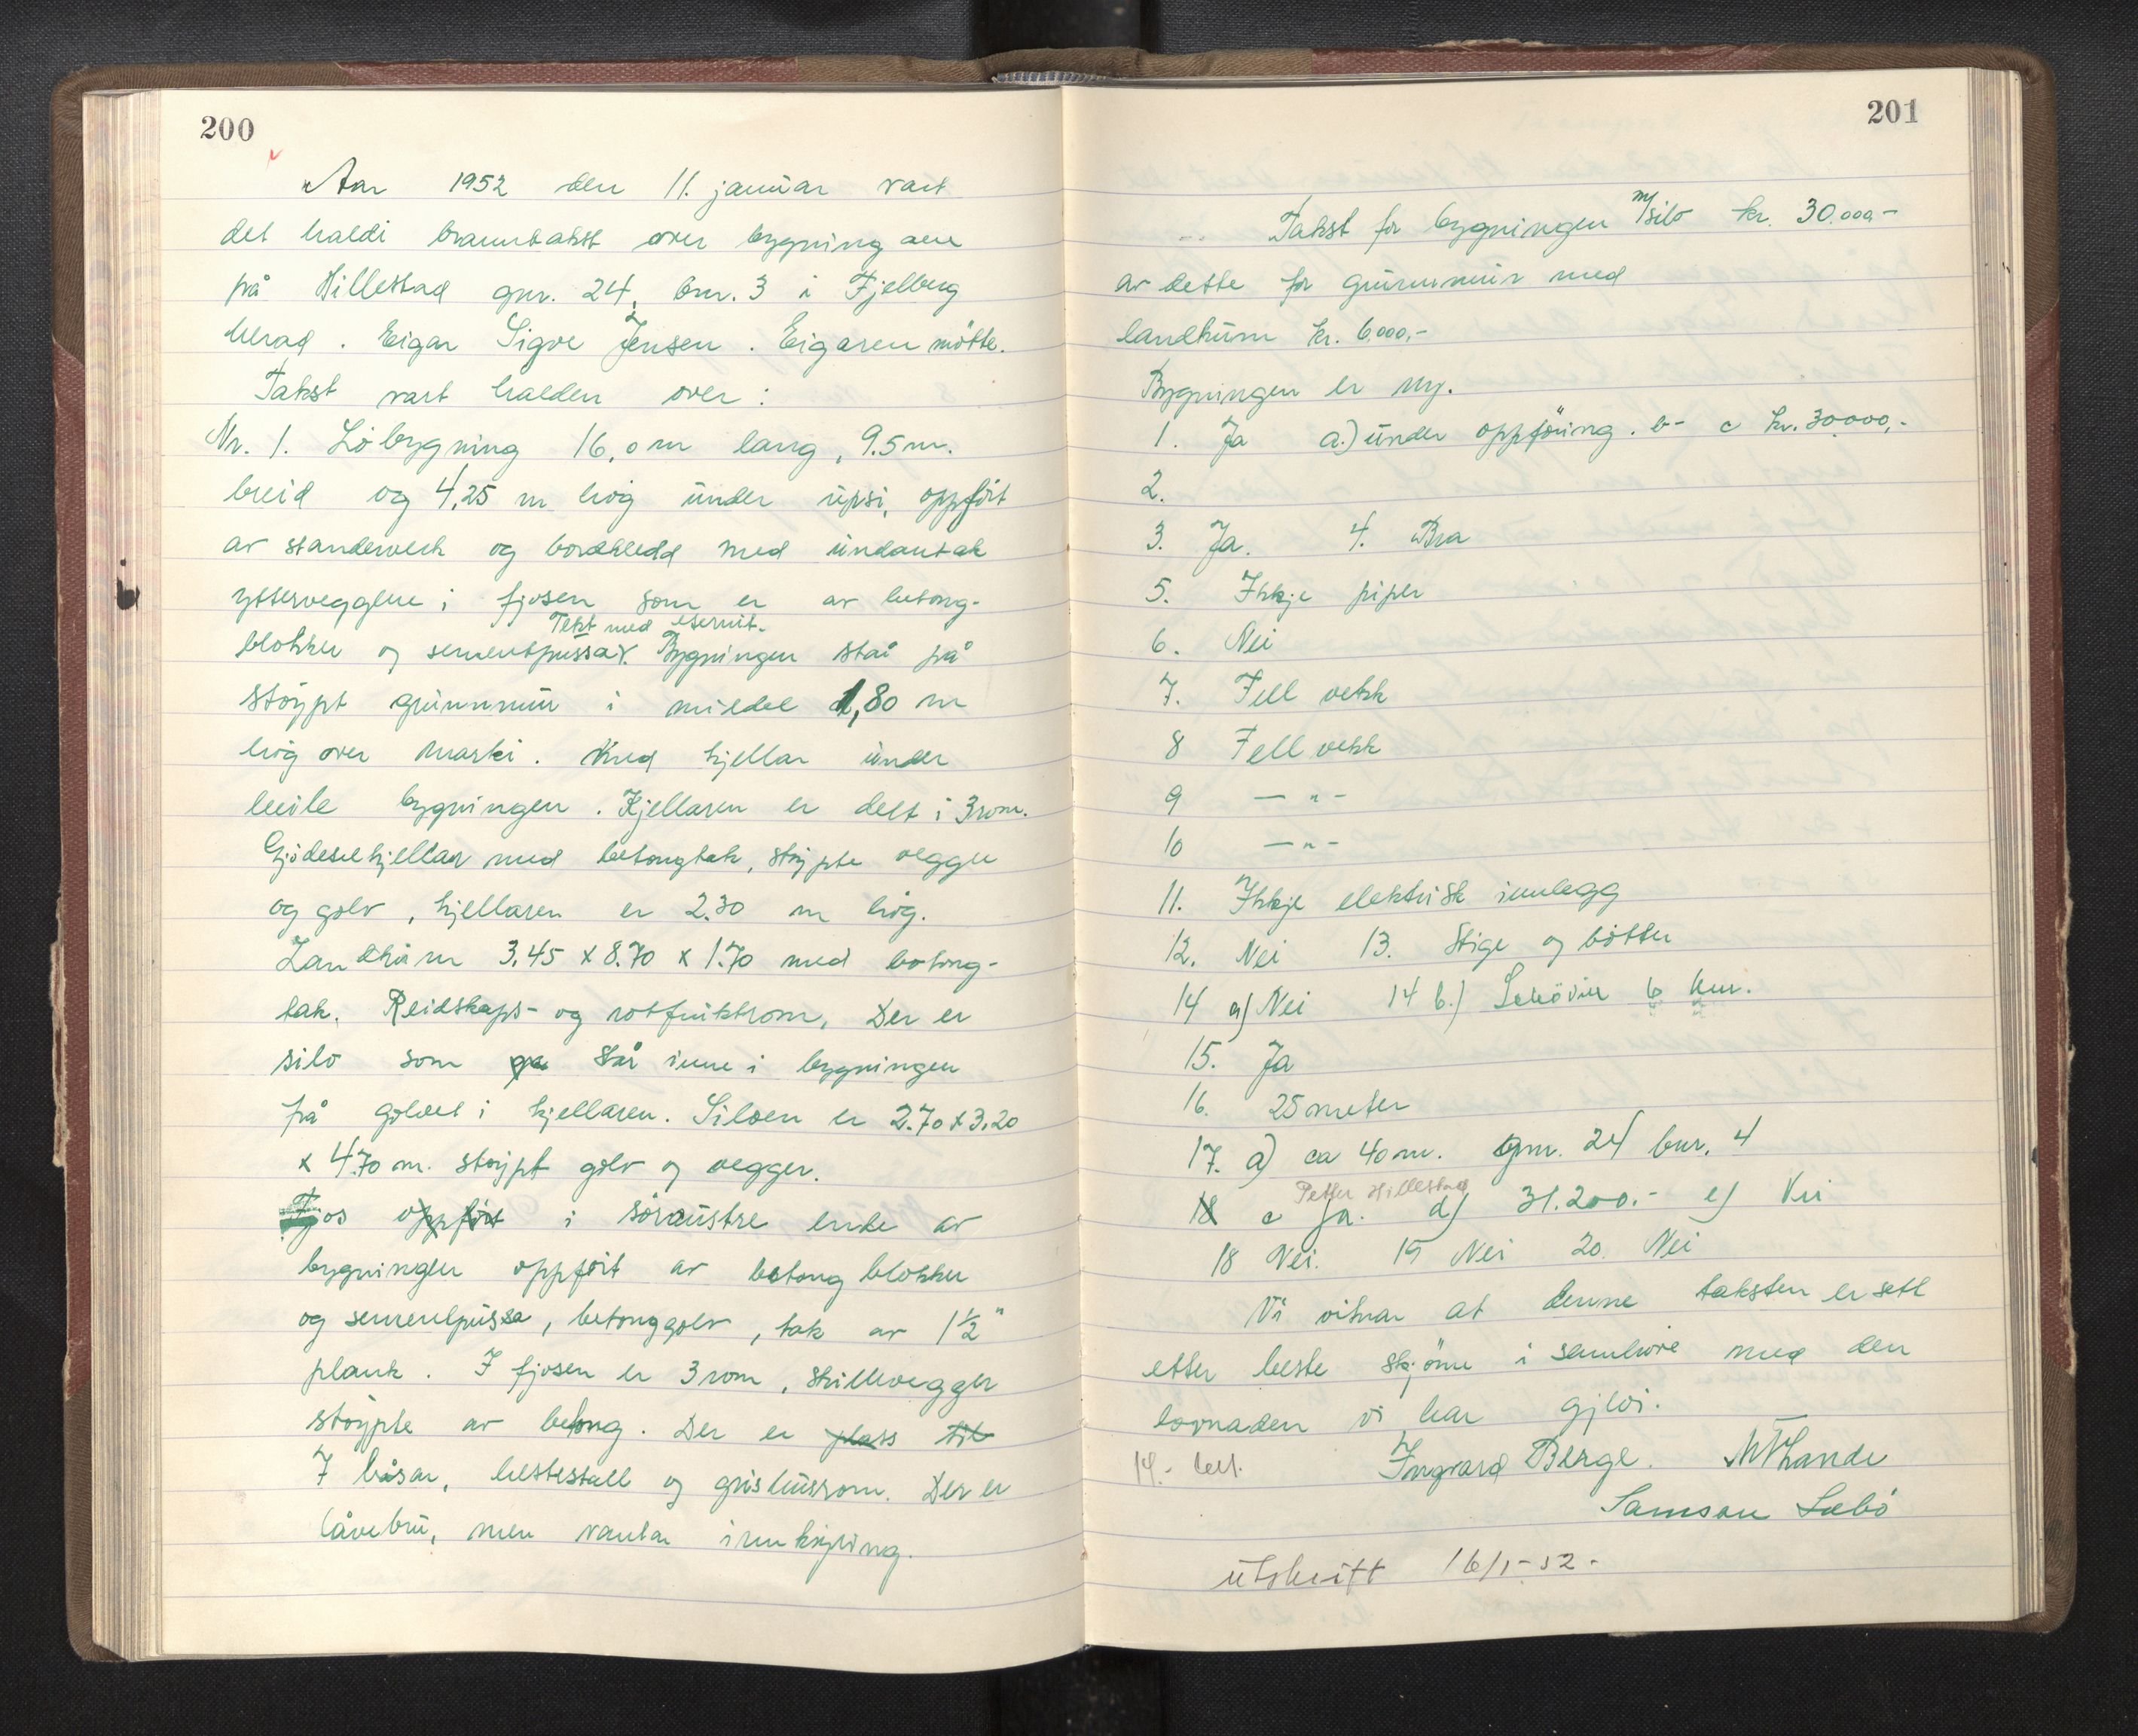 200
Aar 1952 den 11. januar vart
det haldi branntakst over bygningane
på Hillestad gnr. 24, bnr. 3 i Fjelberg
herad. Eigar Sigve Jensen. Eigaren mötte.
Takst vart halden over:
Nr. 1. Löbygning 16,0 m lang, 9.5 m.
breid og 4,25 m hög under upsi, oppfört
av standerverk og bordkledd med undantak
ytterveggene i fjosen som er av betong-
Tekt med eternit.
blokker og sementpussa. Bygningen står på
støypt grunnmur i middel 1,80 m
hög over marki. Med kjellar under
heile bygningen. Kjellaren er delt i 3 rom.
Gjödselkjellar med betongtak, støypte vegger
og golv, kjellaren er 2.30 m hög.
Landkum 3.45 x 8.70 x 1.70 med betong-
tak. Reidskaps- og rotfruktrom, Der er
silo som står inne i bygningen
på golvet i kjellaren. Siloen er 2.70 x 3.20
x 4.70 m. støypt golv og vegger.
Fjos oppfört i söraustre ende av
bygningen oppfört av betong blokker
og sementpussa, betonggolv, tak av 1 1/2"
plank. I fjosen er 3 rom, skillevegger
støypte av betong. Der er plass til
7 båsar, hestestall og grishusrom. Der er
låvebru, men vantar innkøyring.
201
Takst for bygningen m/silo kr. 30.000-
av dette for grunnmur med
landkum kr. 6000,-
Bygningen er ny.
1. Ja a.) under oppföring. b- c kr. 30000,-
2.
3. Ja. 4. Bra
5. Ikkje piper
6. Nei
7. Fell vekk
8 Fell vekk
9 — " -
10 — " -
11. Ikkje elektrisk innlegg
12. Nei 13. Stige og bötter
14 a) Nei 14 b.) 6 km.
15. Ja
16. 25 meter
17. a) ca 40 m. gnr. 24 bnr. 4
Petter Hillestad
18 c Ja. d) 31.200.- e) Nei
18 Nei. 19 Nei 20. Nei
Vi vitnar at denne taksten er sett
etter beste skjönn i samhøve med den
lovnaden vi har gjevi.
14.- Ingvard Berge. Lande
Samson Sæbö
utskrift 16/1-52-